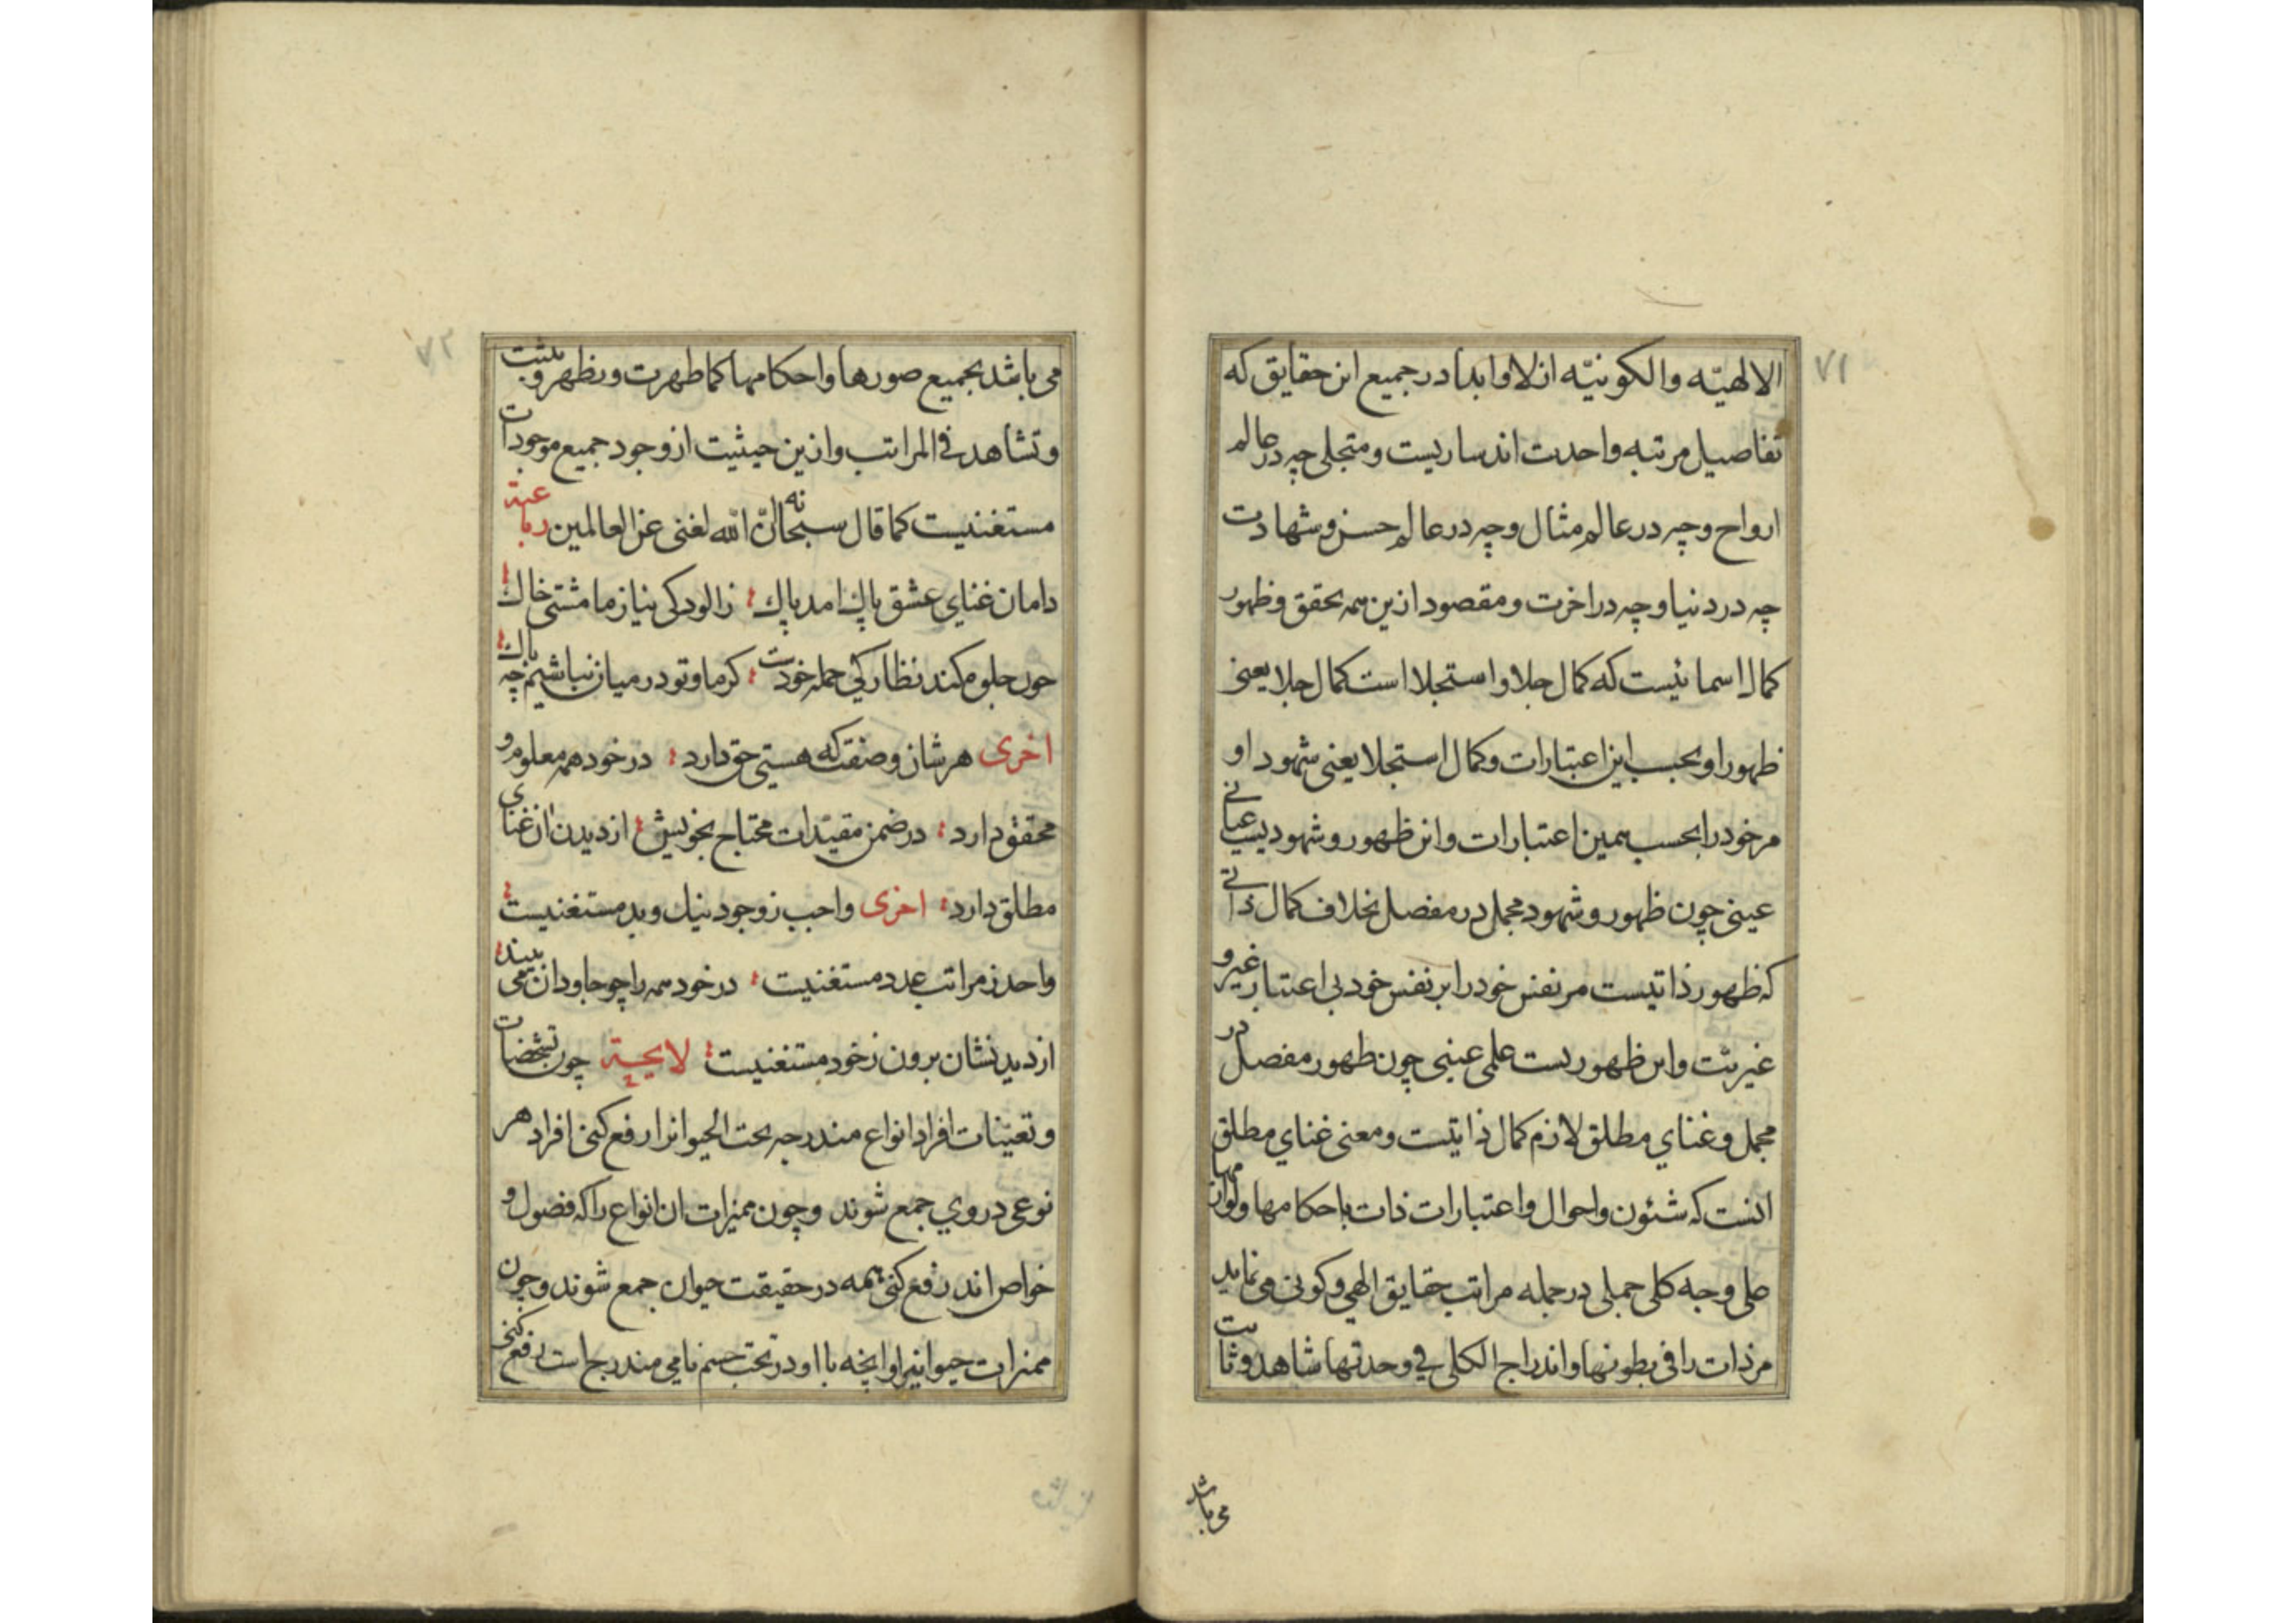 ٧١
الالهیّه والکونیّه ازلا وابدا در جمیع این حقایق که
تفاصیل مرتبه واحدت اند ساریست ومتجلی چه در عالم
ارواح وچه در عالم مثال وچه در عالم حس وشهادت
چه در دنیا وچه در اخرت ومقصود ازین همه تحقق وظهور
کمال اسمائیست که کمال جلا واستجلا است کمال جلا یعنی
ظهور او بحسب این اعتبارات وکمال استجلا یعنی شهود او
مر خود را بحسب همین اعتبارات واین ظهور وشهودیست عیانی
عینی چون ظهور وشهود مجمل در مفصل بخلاف کمال ذاتی
که ظهور ذاتیست مر نفس خود را بر نفس خود بی اعتبار غیر و
غیریت واین ظهوریست علمی عینی چون ظهور مفصل در
مجمل وغنای مطلق لازم کمال ذاتیست ومعنی غنای مطلق
انست که شئون واحوال واعتبارات ذات باحکامها ولوازمها
علی وجه کلی جملی در جمله مراتب حقایق الهی وکونی می نماید
مر ذات را فی بطونها واندراج الکل فی وحدتها شاهد وثابت
می باشد
٧٢
می باشد بجمیع صورها واحکامها کما ظهرت ویظهر ویثبت
وتشاهد فی المراتب وازین حیثیت از وجود جمیع موجودات
مستغنیست کما قال سبحانه ان الله لغنی عن العالمین رباعیة
دامان غنای عشق پاک امد پاک زالودکی نیاز ما مشتی خاک
چون جلوه کند نظارکی جمله خودست کر ما وتو در میان نباشیم چه باک
اخری هر شان وصفت که هستی حق دارد در خود همه معلوم و
محقق دارد در ضمن مقیّدات محتاج بخویش از دیدن ان غنای
مطلق دارد اخری واجب ز وجود نیک وبد مستغنیست
واحد ز مراتب عدد مستغنیست در خود همه را چو جاودان می بیند
از دیدنشان برون ز خود مستغنیست لایحـة چون تشخصات
وتعیّنات افراد انواع مندرجه تحت الحیوانرا رفع کنی افراد هر
نوعی در وی جمع شوند وچون ممیزات ان انواع را که فصول و
خواص اند رفع کنی همه در حقیقت حیوان جمع شوند وچون
ممیزات حیوانیرا وانچه با او در تحت جسم نامی مندرج است رفع کنی